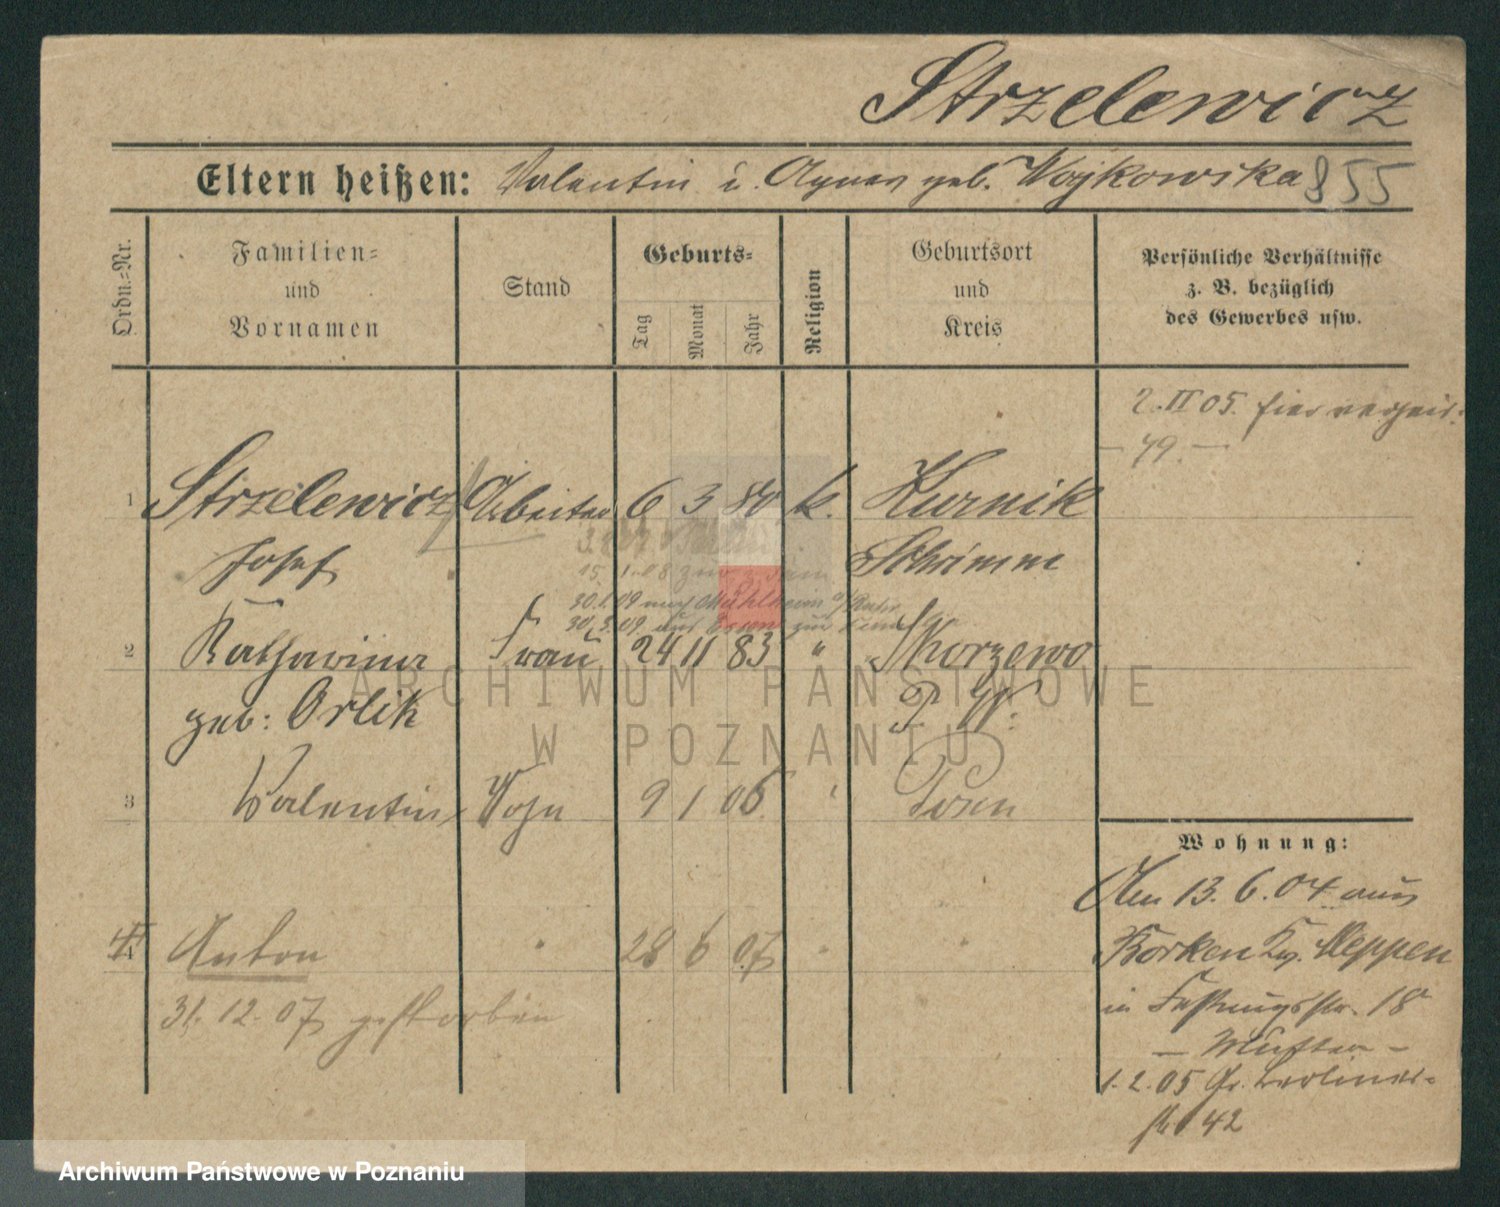 Strzelewicz
Eltern heißen: Valentin u. Agnes geb. Woykowska 855
Ordn.=Nr.
Familien=
und
Vornamen
Stand
Geburts=
Tag
Monat
Jahr
Religion
Geburtsort
und
Kreis
Persönliche Verhältnisse
z. B. bezüglich
des Gewerbes usw.
2. II 05. hier verheir.
— 49. —
1 Strzelewicz Arbeiter 6 3 80 k. Kurnik
Josef Schrimm
30.1.09 nach Mühlheim a/Ruhr
30.3.09 aus Essen zur
2 Katharina Frau 24 11 83 " Skorzewo
geb: Orlik P. W.
3 Valentin Sohn 9 1 06 Posen
4 Anton 28 6 07
31. 12. 07 gestorben
Wohnung:
Am 13. 6. 04 aus
Borken Kr. Meppen
in Festungsstr. 18
— Mutter —
1. 2. 05 Gr. Berliner-
str 42
ARCHIWUM PAŃSTWOWE
W POZNANIU
Archiwum Państwowe w Poznaniu